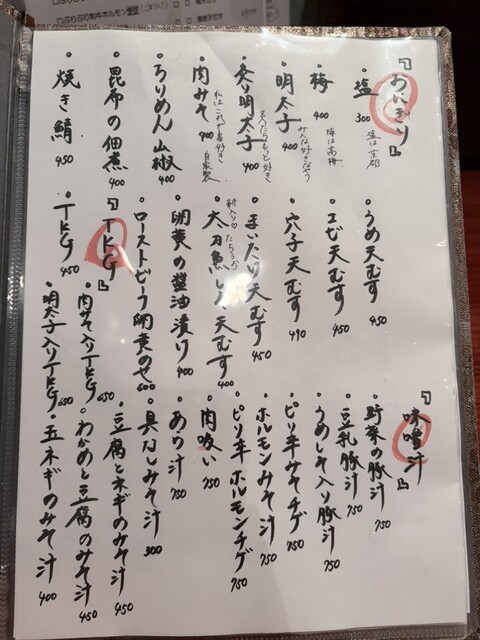 『おにぎり』
・塩 300
塩は京都
・梅 400
梅は高梅
・明太子 400
みんな好きなやつ
・炙り明太子 400
・肉みそ 400
私はこれが一番好き 自家製
・ちりめん山椒 400
・昆布の佃煮 400
・焼き鯖 450
・うめ天むす 450
・エビ天むす 450
・穴子天むす 490
・まいたけ天むす 450
・太刀魚しそ天むす 400
新入り♡たちうお
・卵黄の醤油漬け 400
・ローストビーフ卵黄のせ 600
『TKG』
・TKG 450
・肉みそ入りTKG 650
・明太子入りTKG 650
『味噌汁』
・野菜の豚汁 750
・豆乳豚汁 750
・うめしそ入り豚汁 750
・ピリ辛みそチゲ 750
・ホルモンみそ汁 750
・ピリ辛ホルモンチゲ 750
・肉吸い 750
・あら汁 750
・具なしみそ汁 300
・豆腐とネギのみそ汁 450
・わかめと豆腐のみそ汁 450
・玉ネギのみそ汁 400